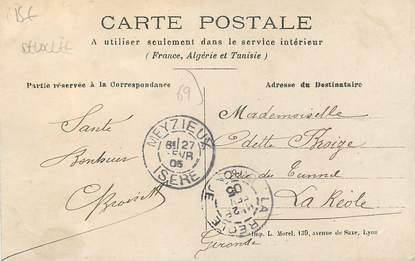 CARTE POSTALE
A utiliser seulement dans le service intérieur
(France, Algérie et Tunisie)
Partie réservée à la Correspondance
Adresse du Destinataire
69
MEYZIEUX
27
05
ISÈRE
Santé
Bonheur
Mademoiselle
Odette
Rue du Tunnel
La Réole
Gironde
LA RÉOLE
Imp. L. Morel, 139, avenue de Saxe, Lyon